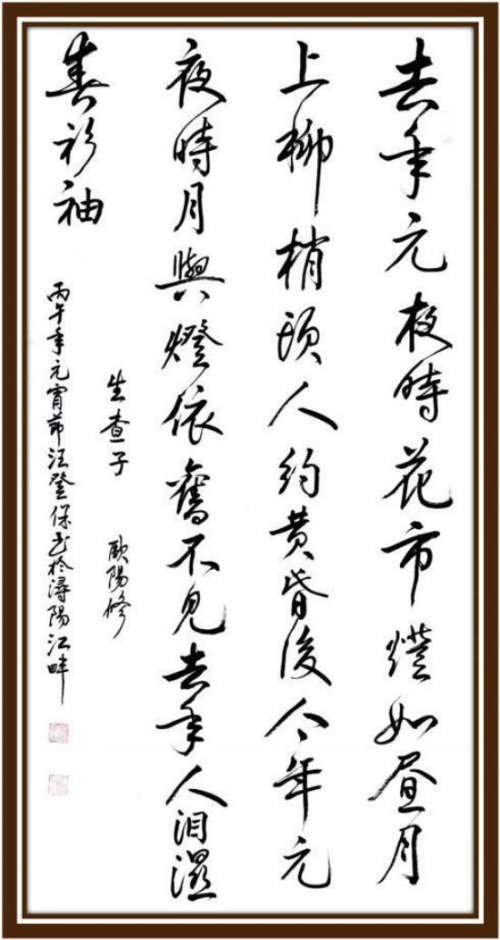 去年元夜時花市燈如晝月
上柳梢頭人約黄昏後今年元
夜時月與燈依舊不見去年人泪濕
春衫袖
生查子 歐陽修
丙午年元宵節汪登保书於潯陽江畔